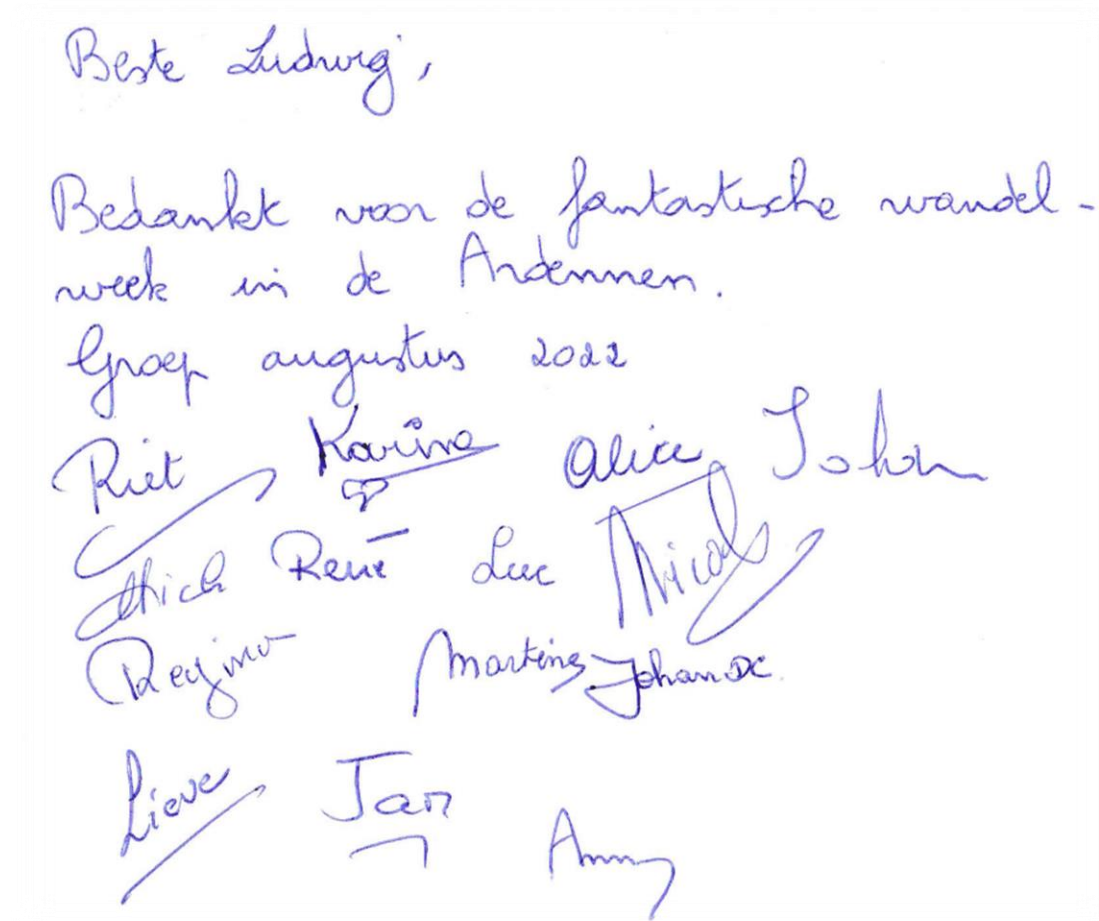 Beste Ludwig,
Bedankt voor de fantastische wandel-
week in de Ardennen.
Groep augustus 2022
Riet Karine Alice Johan
Mich René Luc Nicole
Regina Martine Johan DC
Lieve Jan Anny